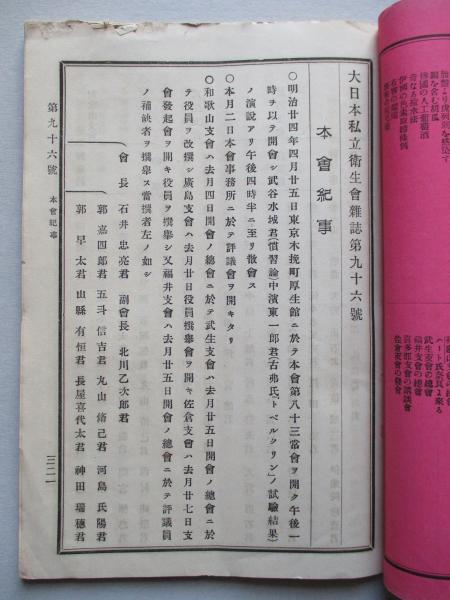 大日本私立衞生會雜誌第九十六號
本會紀事
〇明治廿四年四月廿五日東京木挽町厚生館ニ於テ本會第八十三常會ヲ開ク午後一
時ヲ以テ開會シ武谷水城君(慣習論中濱東一郎君(古弗氏「トベルクリン」ノ試驗結果)
ノ演說アリ午後四時半ニ至リ散會ス
〇本月二日本會事務所ニ於テ評議會ヲ開キタリ
〇和歌山支會ハ去月四日開會ノ總會ニ於テ武生支會ハ去月廿五日開會ノ總會ニ於
テ役員ヲ改撰シ廣島支會ハ去月廿日役員撰擧會ヲ開キ佐倉支會ハ去月廿七日支
會發起會ヲ開キ役員ヲ撰擧シ又福井支會ハ去月廿五日開會ノ總會ニ於テ評議員
ノ補缺者ヲ撰擧ス當撰者左ノ如シ
會長 石井忠亮君 副會長 北川乙次郎君
郭嘉四郎君 五斗信吉君 丸山脩己君 河島氏陽君
郭早太君 山縣有恒君 長屋喜代太君 神田瑞穗君
第九十六號 本會紀事
三二一
銅を含む胡瓜
佛國の人工葡萄酒
奇なる除水法
ハート氏奈良に來る
武生支會の總會
福井支會の總會
喜多郡支會の談話會
佐倉支會の發會